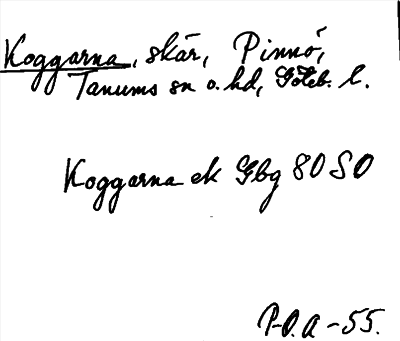 Koggarna, skär, Pinnö,
Tanums sn o. hd, Göteb. l.
Koggarna ek Gbg 80 SO
P-O.A-55.